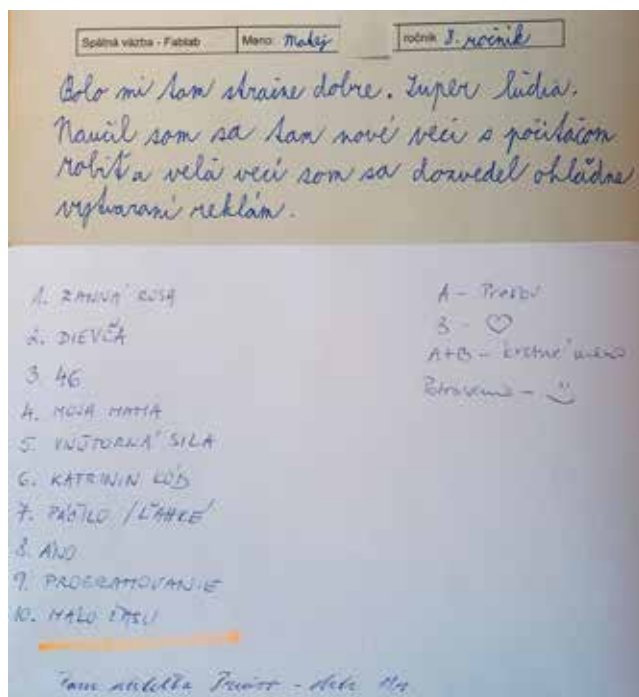 Spätná väzba - Fablab Meno: Matej ročník 3. ročník
Bolo mi tam straine dobre. Super ľudia.
Naučil som sa tam nové veci s počítačom
robiť a velá vecí som sa dozvedel ohľadne
vytvaraní reklám.
1. RANNÁ ROSA
2. DIEVČA
3. 46
4. MOJA MAMA
5. VNÚTORNÁ SILA
6. KATRININ KÓD
7. PÁČILO / ĽAHKÉ
8. ÁNO
9. PROGRAMOVANIE
10. MÁLO ČASU
A -
B - ♡
A+B - krstné meno